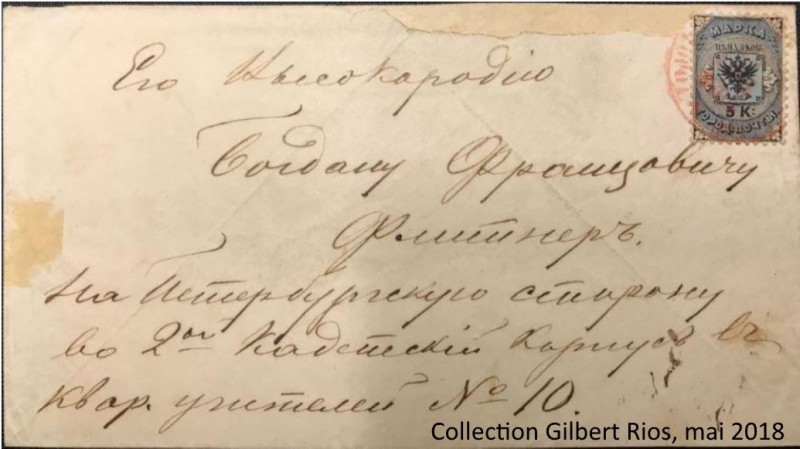 Его Высокородію
Богдану Францовичу
Флитнеръ.
На Петербургскую сторону
во 2ой Кадетскій Корпусъ въ
квар. учителей № 10.
МАРКА
5 К.
ГОРОД. ПОЧТЫ
Collection Gilbert Rios, mai 2018